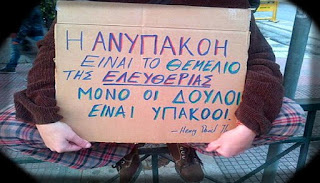 Η ΑΝΥΠΑΚΟΗ
ΕΙΝΑΙ ΤΟ ΘΕΜΕΛΙΟ
ΤΗΣ ΕΛΕΥΘΕΡΙΑΣ
ΜΟΝΟ ΟΙ ΔΟΥΛΟΙ
ΕΙΝΑΙ ΥΠΑΚΟΟΙ.
— Henry David